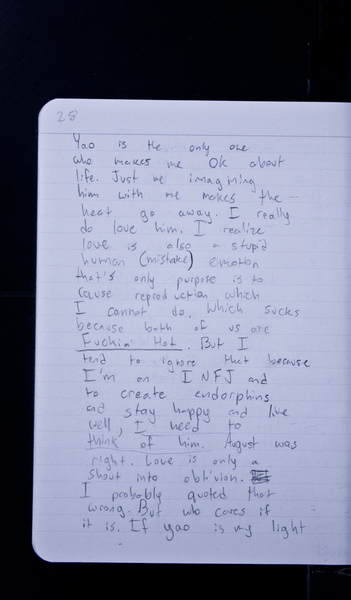 28
Yao is the only one
who makes me OK about
life. Just me imagining
him with me makes the
heat go away. I really
do love him. I realize
love is also a stupid
human (mistake) emotion
that's only purpose is to
cause reproduction which
I cannot do. Which sucks
because both of us are
Fuckin' Hot. But I
tend to ignore that because
I'm an INFJ and
to create endorphins
and stay happy and live
well, I need to
think of him. August was
right. Love is only a
shout into oblivion.
I probably quoted that
wrong. But who cares if
it is. If yao is my light